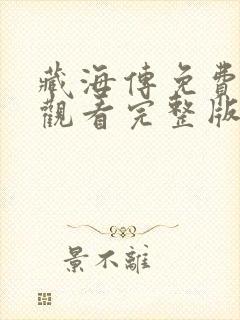 藏海傳免費
觀看完整版
景不離